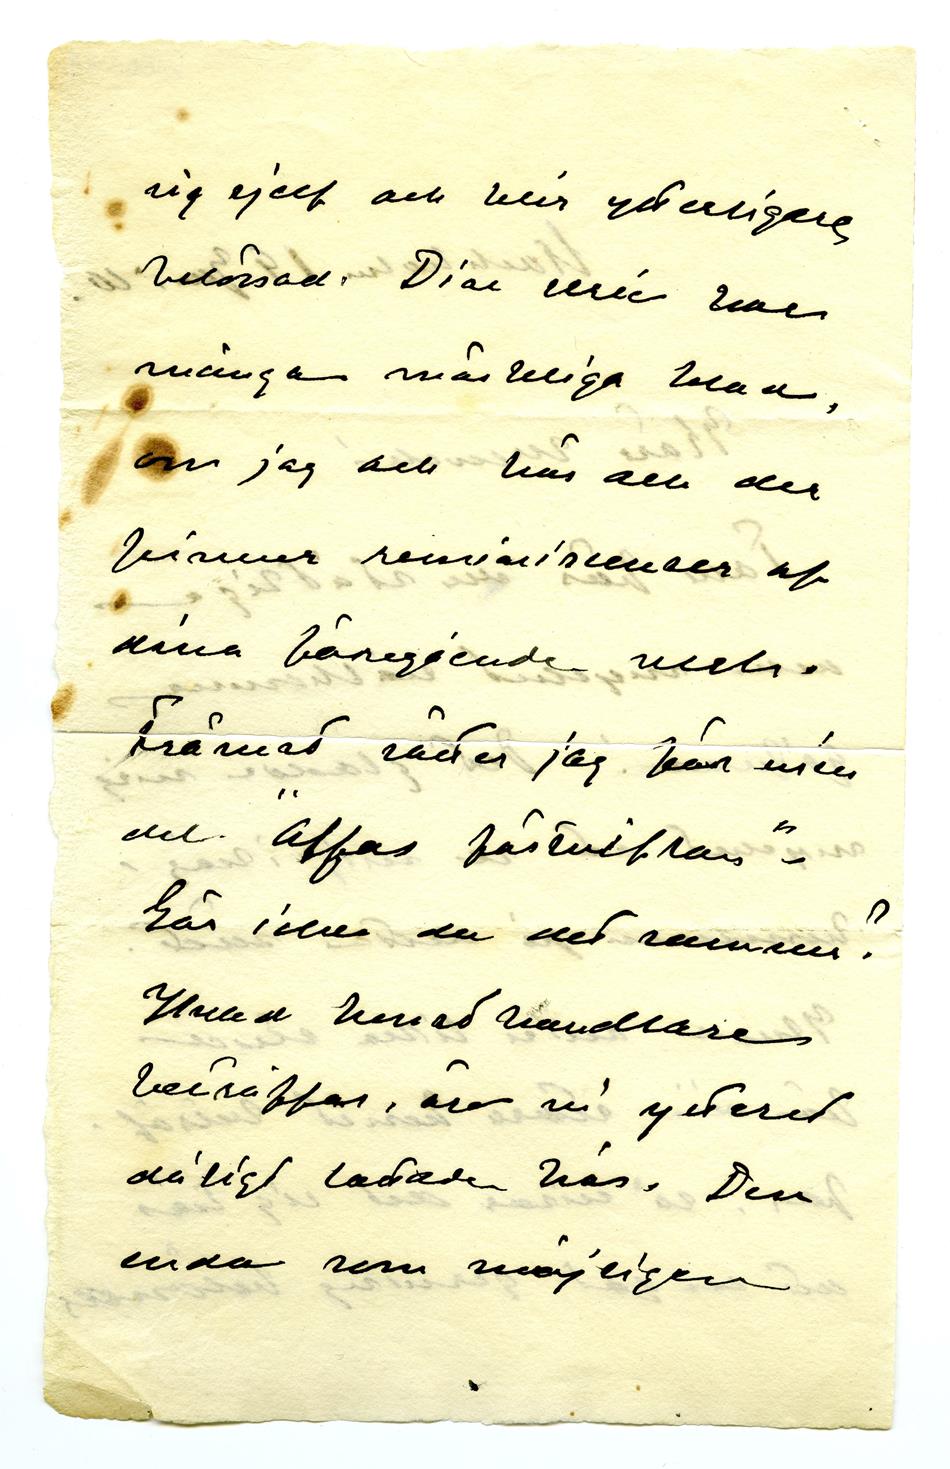 sig sjelf och blir ytterligare
belönad. Din serie har
många märkliga blad,
om jag och här och der
finner reminiscenser af
dina föregående verk.
Främst sätter jag för min
del "Aftas förtviflan".
Gör icke du det samma?
Hvad konsthandlare
beträffar, äro vi ytterst
dåligt lottade här. Den
enda som möjligen